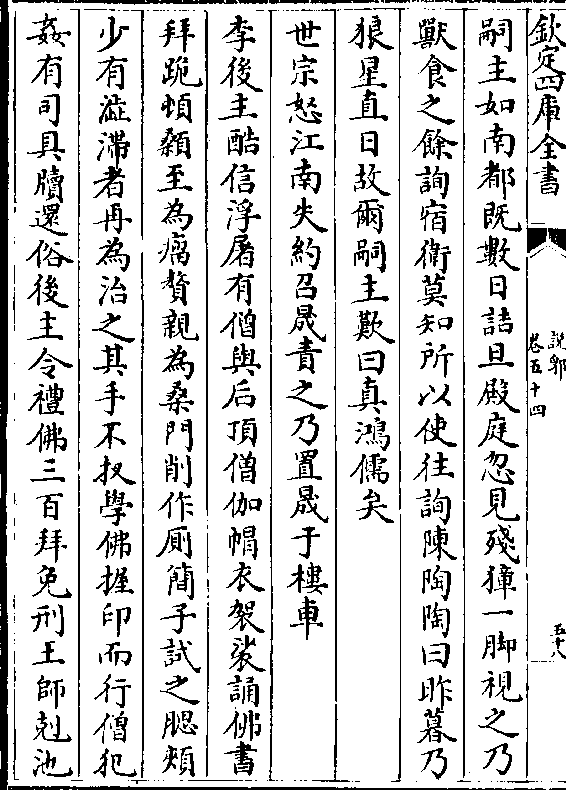 欽定四庫全書
說郛
卷五十四
五十八
嗣主如南都既數日詰旦殿庭忽見殘獐一脚視之乃
獸食之餘詢宿衛莫知所以使往詢陳陶陶曰昨暮乃
狼星直日故爾嗣主歎曰真鴻儒矣
世宗怒江南失約召晟責之乃置晟于樓車
李後主酷信浮屠有僧與后頂僧伽帽衣袈裟誦佛書
拜跪頓顙至為瘤贅親為桑門削作厠簡子試之腮頰
少有澁滯者再為治之其手不扠學佛握印而行僧犯
姦有司具牘還俗後主令禮佛三百拜免刑王師剋池